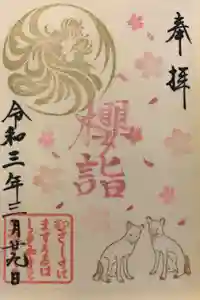 奉拝
櫻詣
令和三年三月廿九日